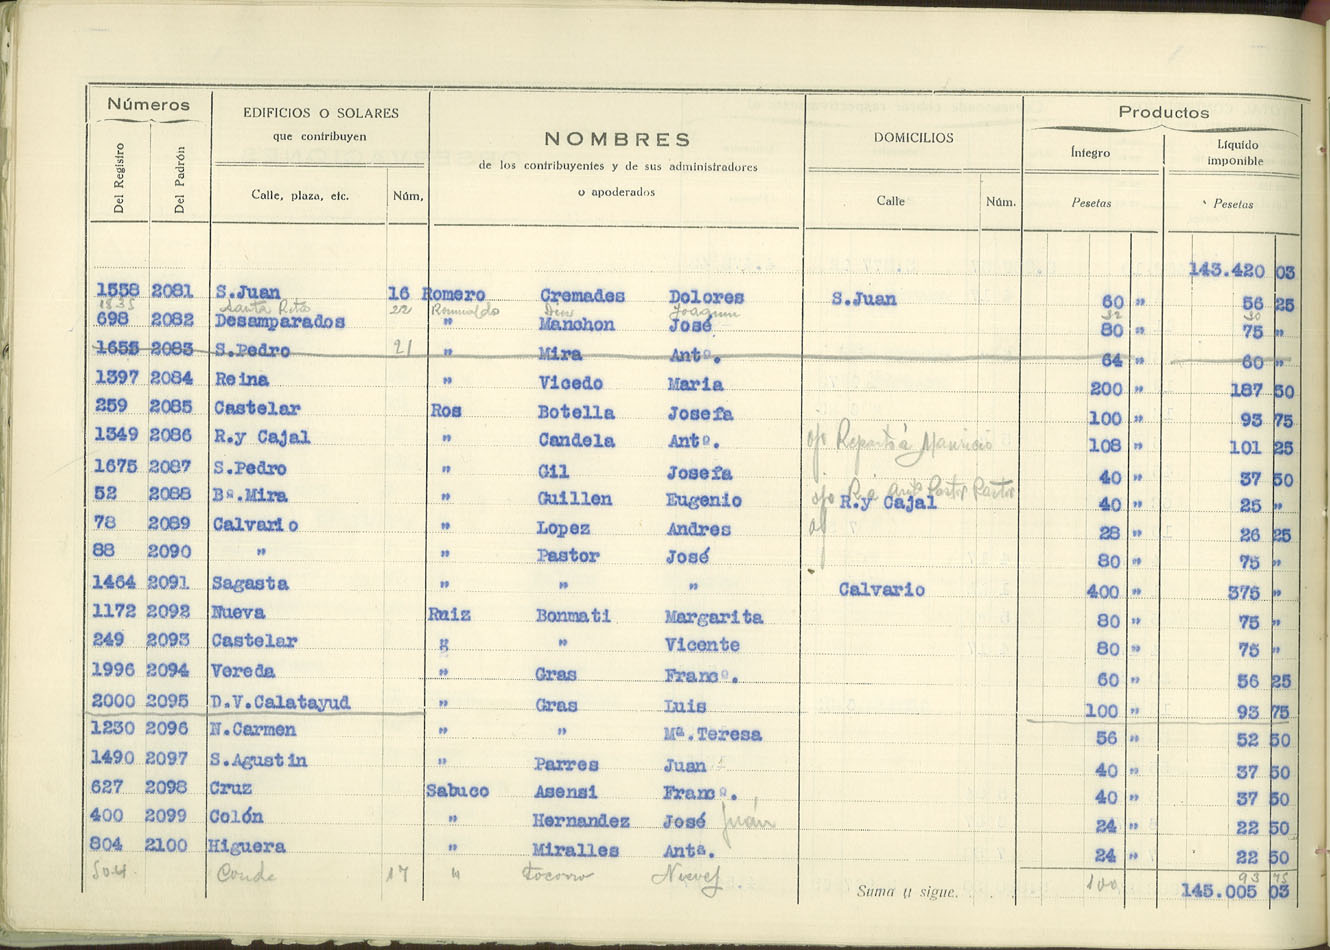 Números
EDIFICIOS O SOLARES
que contribuyen
NOMBRES
de los contribuyentes y de sus administradores
o apoderados
DOMICILIOS
Productos
Del Registro
Del Padrón
Calle, plaza, etc.
Núm,
Calle
Núm.
Íntegro
Pesetas
Líquido imponible
Pesetas
143.420 03
1558 2081 S.Juan 16 Romero Cremades Dolores S.Juan 60 " 56 25
1835 Santa Rita 22 Romualdo Joaquin 32 30
698 2082 Desamparados " Manchon José 80 " 75 "
1655 2083 S.Pedro 21 " Mira Antº. 64 " 60 "
1397 2084 Reina " Vicedo Maria 200 " 187 50
259 2085 Castelar Ros Botella Josefa 100 " 93 75
1349 2086 R.y Cajal " Candela Antº. Mauricio 108 " 101 25
1675 2087 S.Pedro " Gil Josefa 40 " 37 50
Pastor Pastor
52 2088 Bª.Mira " Guillen Eugenio R.y Cajal 40 " 25 "
78 2089 Calvario " Lopez Andres 28 " 26 25
88 2090 " " Pastor José 80 " 75 "
1464 2091 Sagasta " " " Calvario 400 " 375 "
1172 2092 Nueva Ruiz Bonmati Margarita 80 " 75 "
249 2093 Castelar " " Vicente 80 " 75 "
1996 2094 Vereda " Gras Francº. 60 " 56 25
2000 2095 D.V.Calatayud " Gras Luis 100 " 93 75
1230 2096 N.Carmen " " Mª.Teresa 56 " 52 50
1490 2097 S.Agustin " Parres Juan 40 " 37 50
627 2098 Cruz Sabuco Asensi Francº. 40 " 37 50
400 2099 Colón " Hernandez José Juán 24 " 22 50
804 2100 Higuera " Miralles Antª. 24 " 22 50
504 Conde 17 " Socorro Nieves 100 93 75
Suma y sigue. 145.005 03